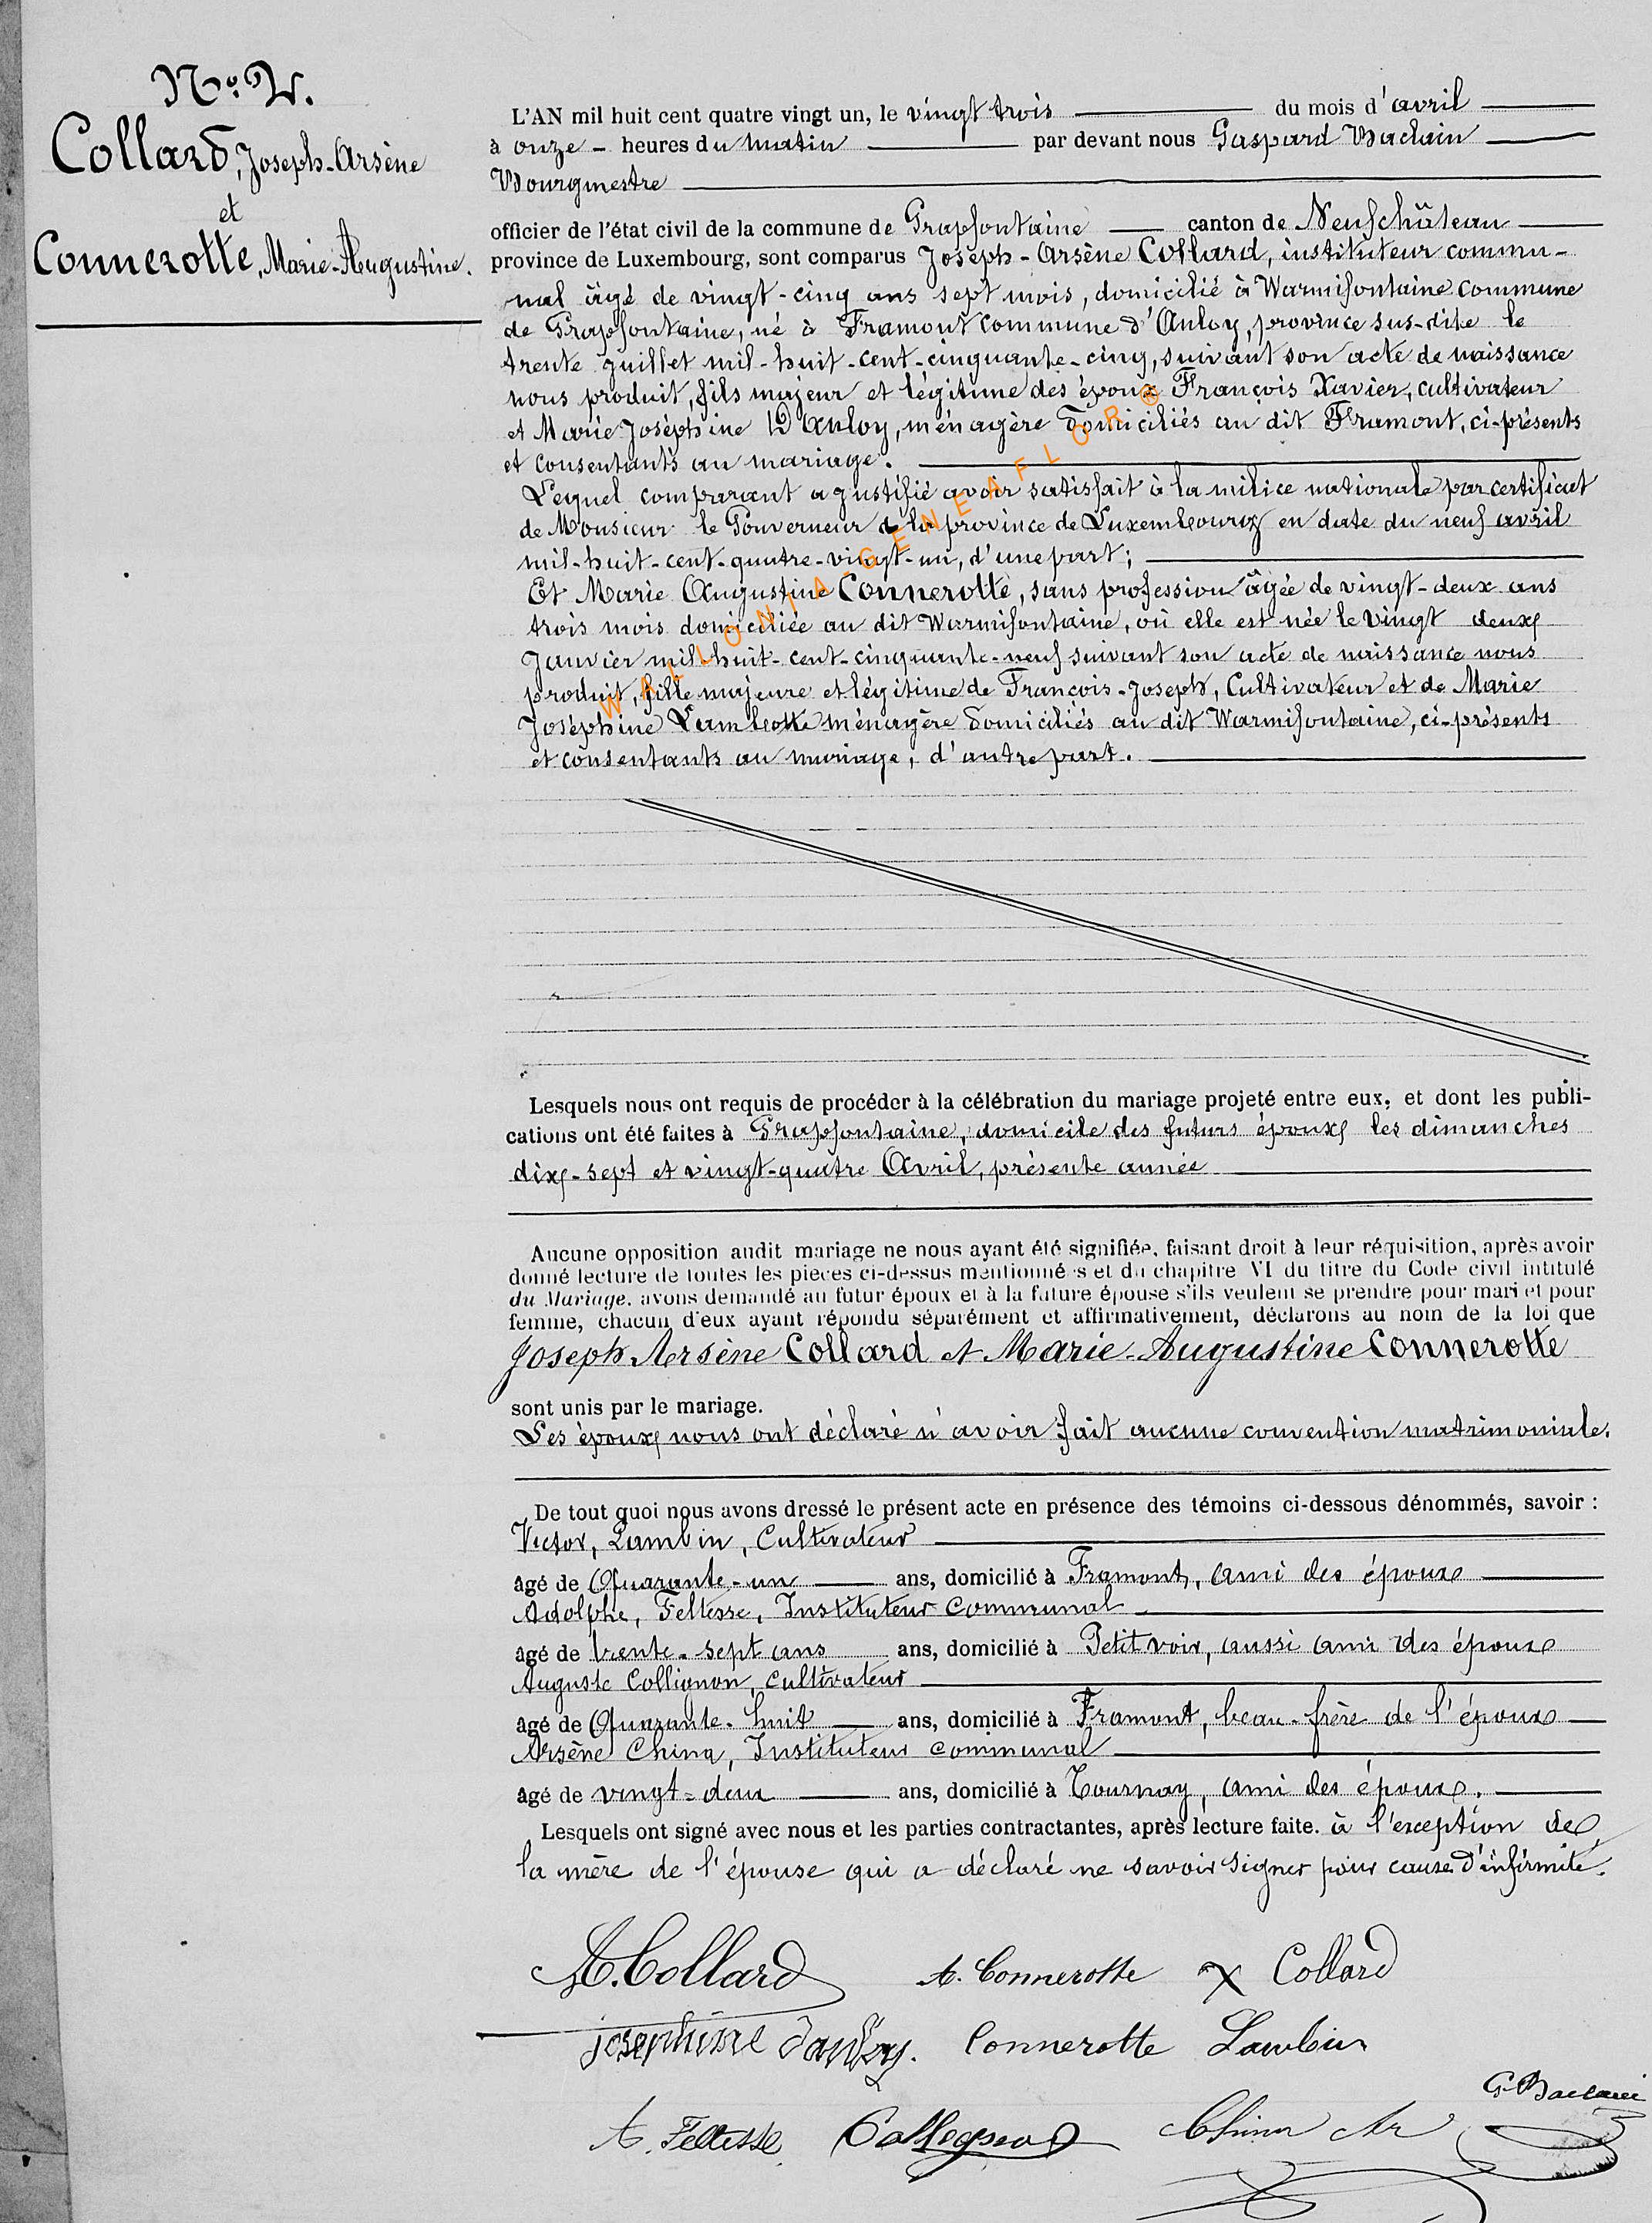 N° 2.
Collard, Joseph-Arsène
et
Connerotte, Marie-Augustine.
L'AN mil huit cent quatre vingt un, le vingt trois du mois d'avril
à onze - heures du matin par devant nous Gaspard Baclain
Bourgmestre
officier de l'état civil de la commune de Grapfontaine canton de Neufchâteau
province de Luxembourg, sont comparus Joseph-Arsène Collard, instituteur commu-
nal âgé de vingt-cinq ans sept mois, domicilié à Warmifontaine commune
de Grapfontaine, né à Framont commune d'Anloy, province sus-dite le
trente juillet mil-huit-cent-cinquante-cinq, suivant son acte de naissance
nous produit, fils majeur et légitime des époux François Xavier, cultivateur
et Marie Joséphine D'Anloy, ménagère domiciliés au dit Framont, ci-présents
et consentants au mariage.
Lequel comparant a justifié avoir satisfait à la milice nationale par certificat
de Monsieur le Gouverneur de la province de Luxembourg en date du neuf avril
mil-huit-cent-quatre-vingt-un, d'une part;
Et Marie Augustine Connerotte, sans profession âgée de vingt-deux ans
trois mois domiciliée au dit Warmifontaine, où elle est née le vingt deux
Janvier mil-huit-cent-cinquante-neuf suivant son acte de naissance nous
produit, fille majeure et légitime de François-Joseph, Cultivateur et de Marie
Joséphine Lambotte ménagère domiciliés au dit Warmifontaine, ci-présents
et consentants au mariage, d'autre part.
WALLONIA-GENEAFLOR®
Lesquels nous ont requis de procéder à la célébration du mariage projeté entre eux, et dont les publi-
cations ont été faites à Grapfontaine, domicile des futurs époux les dimanches
dix-sept et vingt-quatre Avril, présente année
Aucune opposition audit mariage ne nous ayant été signifiée, faisant droit à leur réquisition, après avoir
donné lecture de toutes les pièces ci-dessus mentionnées et du chapitre VI du titre du Code civil intitulé
du Mariage, avons demandé au futur époux et à la future épouse s'ils veulent se prendre pour mari et pour
femme, chacun d'eux ayant répondu séparément et affirmativement, déclarons au nom de la loi que
Joseph Arsène Collard et Marie-Augustine Connerotte
sont unis par le mariage.
Les époux nous ont déclaré n'avoir fait aucune convention matrimoniale.
De tout quoi nous avons dressé le présent acte en présence des témoins ci-dessous dénommés, savoir :
Victor, Lambin, Cultivateur
âgé de Quarante-un ans, domicilié à Framont, ami des époux
Adolphe, Feltesse, Instituteur communal
âgé de trente-sept ans ans, domicilié à Petitvoir, aussi ami des époux
Auguste Collignon, cultivateur
âgé de Quarante-huit ans, domicilié à Framont, beau-frère de l'époux
Arsène China, Instituteur communal
âgé de vingt-deux ans, domicilié à Tournay, ami des époux.
Lesquels ont signé avec nous et les parties contractantes, après lecture faite. à l'exception de
la mère de l'épouse qui a déclaré ne savoir signer pour cause d'infirmité.
A. Collard A. Connerotte X Collard
josephine danloy. Connerotte Lambin
G. Baclain
A. Feltesse Collignon China Ar